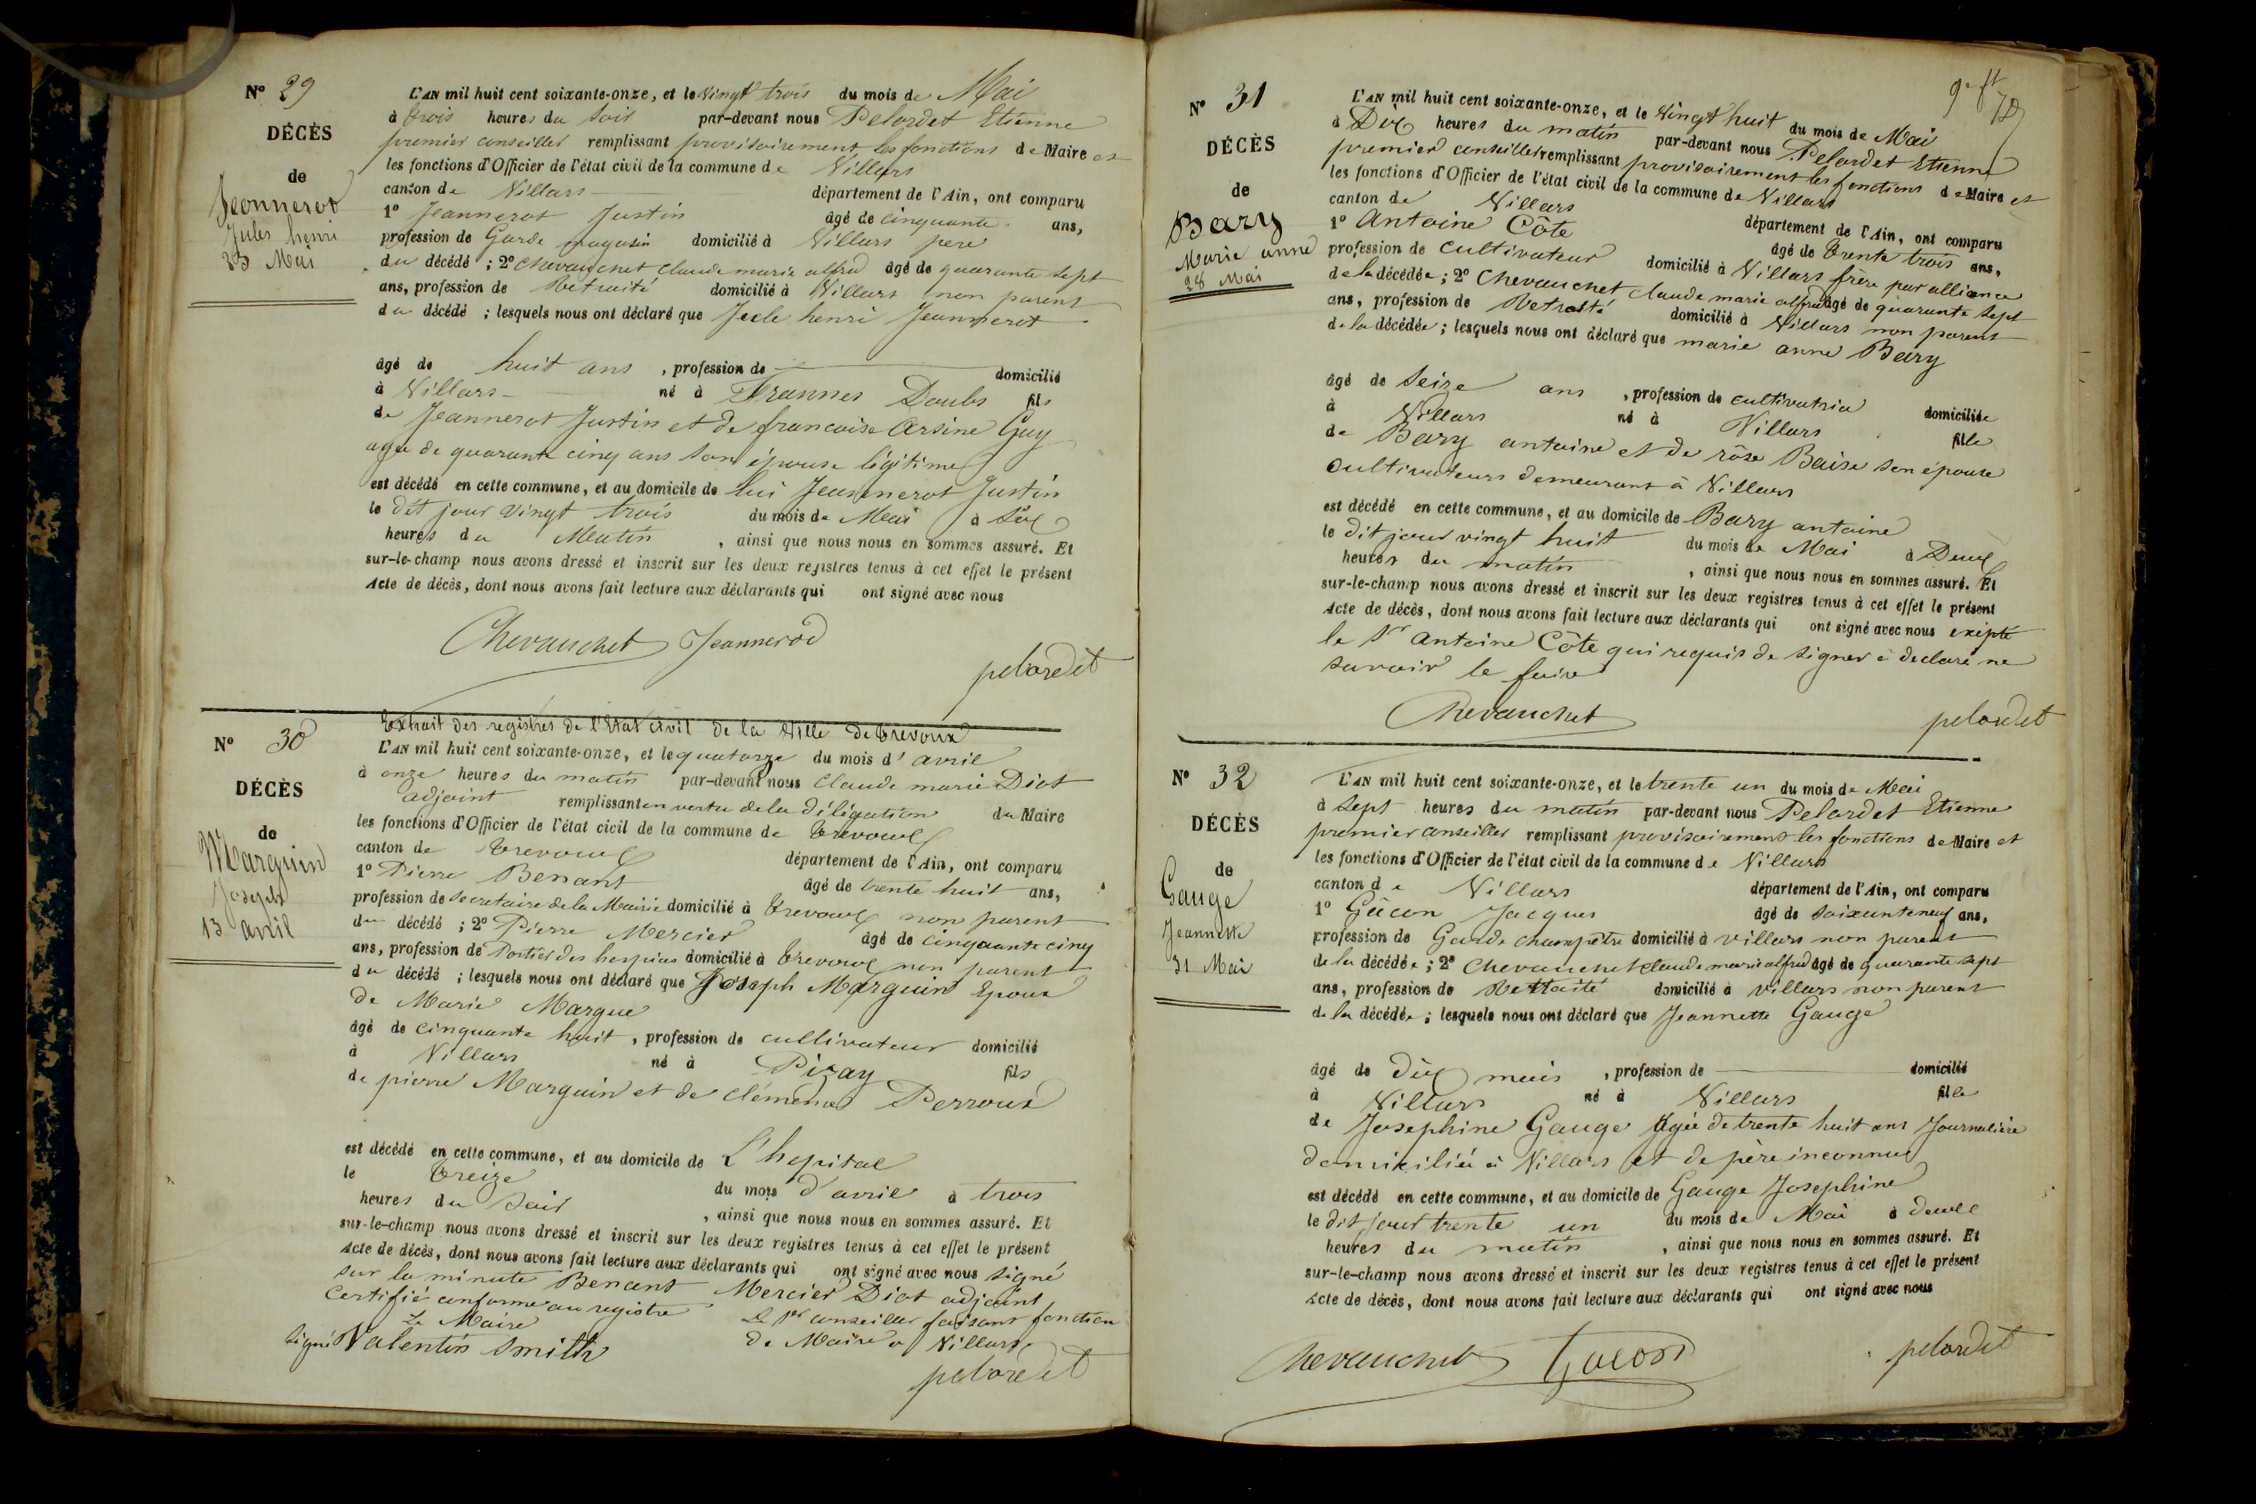 N° 29
DÉCÈS
de
Jeannerot
Jules henri
23 Mai
L'AN mil huit cent soixante-onze, et le Vingt trois du mois de Mai
à trois heures du soir par-devant nous Pelordet Etienne
premier conseiller remplissant provisoirement les fonctions de Maire et
les fonctions d'Officier de l'état civil de la commune de Villars
canton de Villars département de l'Ain, ont comparu
1° Jeannerot Justin âgé de cinquante ans,
profession de Garde magasin domicilié à Villars père
du décédé ; 2° Chevauchet claude marie alfred âgé de quarante sept
ans, profession de Retraité domicilié à Villars non parent
du décédé ; lesquels nous ont déclaré que Jule henri Jeannerot
âgé de huit ans , profession de domicilié
à Villars né à Frannes Doubs fils
de Jeannerot Justin et de francoise Arsine Guy
agée de quarante cinq ans son épouse légitime
est décédé en cette commune, et au domicile de lui Jeannerot Justin
le dit jour vingt trois du mois de Mai à Six
heures du Matin , ainsi que nous nous en sommes assuré. Et
sur-le-champ nous avons dressé et inscrit sur les deux registres tenus à cet effet le présent
Acte de décès, dont nous avons fait lecture aux déclarants qui ont signé avec nous
Chevauchet Jeannerod
pelordet
N° 30
DÉCÈS
de
Marguin
Joseph
13 avril
Extrait des registres de l'Etat civil de la Ville de Trevoux
L'AN mil huit cent soixante-onze, et le quatorze du mois d'avril
à onze heures du matin par-devant nous Claude marie Diot
adjoint remplissant en vertu de la délégation du Maire
les fonctions d'Officier de l'état civil de la commune de Trevoux
canton de Trevoux département de l'Ain, ont comparu
1° Pierre Benant âgé de trente huit ans,
profession de Secretaire de la Mairie domicilié à Trevoux non parent
du décédé ; 2° Pierre Mercier âgé de cinquante cinq
ans, profession de Portier des hospices domicilié à Trevoux non parent
du décédé ; lesquels nous ont déclaré que Joseph Marguin Epoux
de Marie Margue
âgé de cinquante huit , profession de cultivateur domicilié
à Villars né à Pizay fils
de pierre Marguin et de clémence Perroux
est décédé en cette commune, et au domicile de L'hopital
le treize du mois d'avril à trois
heures du Soir , ainsi que nous nous en sommes assuré. Et
sur-le-champ nous avons dressé et inscrit sur les deux registres tenus à cet effet le présent
Acte de décès, dont nous avons fait lecture aux déclarants qui ont signé avec nous signé
sur la minute Benant Mercier Diot adjoint
Certifié conforme au registre Le 1er conseiller faisant fonction
Le Maire de Maire a Villars
signé Valentin Smith
pelordet
78
N° 31
DÉCÈS
de
Bary
Marie anne
28 Mai
L'AN mil huit cent soixante-onze, et le Vingt huit du mois de Mai
à Dix heures du matin par-devant nous Pelordet Etienne
premier conseiller remplissant provisoirement les fonctions de Maire et
les fonctions d'Officier de l'état civil de la commune de Villars
canton de Villars département de l'Ain, ont comparu
1° Antoine Côte âgé de trente trois ans,
profession de cultivateur domicilié à Villars frère par alliance
de la décédée ; 2° Chevauchet claude marie alfred âgé de quarante sept
ans, profession de Retraité domicilié à Villars non parent
de la décédée ; lesquels nous ont déclaré que marie anne Bary
âgé de Seize ans , profession de cultivatrice domiciliée
à Villars né à Villars fille
de Bary antoine et de rôse Baise son épouse
cultivateurs demeurant à Villars
est décédé en cette commune, et au domicile de Bary antoine
le dit jour vingt huit du mois de Mai à Deux
heures du matin , ainsi que nous nous en sommes assuré. Et
sur-le-champ nous avons dressé et inscrit sur les deux registres tenus à cet effet le présent
Acte de décès, dont nous avons fait lecture aux déclarants qui ont signé avec nous exépté
le Sr antoine Côte qui requis de signer à declaré ne
savoir le faire
Chevauchet pelordet
N° 32
DÉCÈS
de
Gauge
Jeannette
31 Mai
L'AN mil huit cent soixante-onze, et le trente un du mois de Mai
à Sept heures du matin par-devant nous Pelordet Etienne
premier conseiller remplissant provisoirement les fonctions de Maire et
les fonctions d'Officier de l'état civil de la commune de Villars
canton de Villars département de l'Ain, ont comparu
1° Gâcon Jacques âgé de soixante neuf ans,
profession de Garde champêtre domicilié à villars non parent
de la décédée ; 2° Chevauchet claude marie alfred âgé de quarante sept
ans, profession de Retraité domicilié à villars non parent
de la décédée ; lesquels nous ont déclaré que Jeannette Gauge
âgé de Dix mois , profession de domicilié
à Villars né à Villars fille
de Josephine Gauge Agée de trente huit ans Journalière
domiciliée à Villars et de père inconnu
est décédé en cette commune, et au domicile de Gauge Josephine
le dit jour trente un du mois de Mai à deux
heures du matin , ainsi que nous nous en sommes assuré. Et
sur-le-champ nous avons dressé et inscrit sur les deux registres tenus à cet effet le présent
Acte de décès, dont nous avons fait lecture aux déclarants qui ont signé avec nous
Chevauchet Gacon pelordet